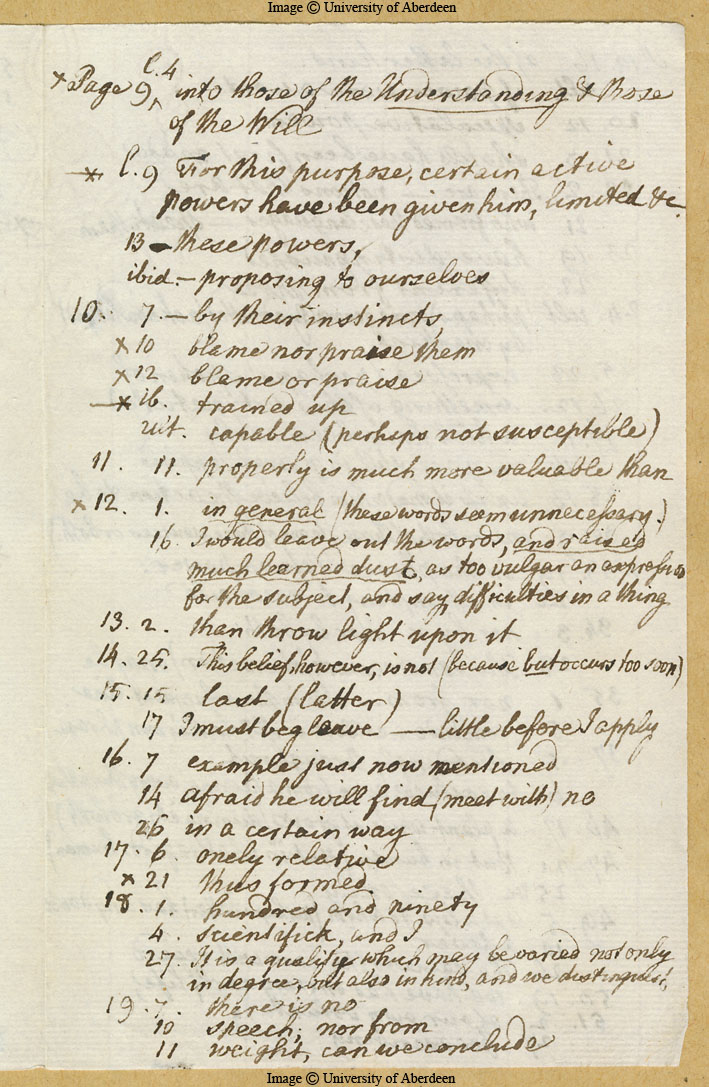 Image © University of Aberdeen
l. 4
× Page 9, ^ into those of the Understanding & those
of the Will
—× l. 9 For this purpose, certain active
powers have been given him, limited &c.
13 — these powers,
ibid. — proposing to ourselves
10. 7. — by their instincts,
×10 blame nor praise them
×12 blame or praise
—× ib. trained up
ult. capable (perhaps not susceptible)
11. 11. properly is much more valuable than
×12. 1. in general (these words seem unnecessary.)
16. I would leave out the words, and raised
much learned dust, as too vulgar an expression
for the subject, and say, difficulties in a thing
13. 2. than throw light upon it
14. 25. This belief, however, is not (because but occurs too soon)
15. 15 last (latter)
17 I must beg leave — little before I apply
16. 7 example just now mentioned
14 afraid he will find (meet with) no
26 in a certain way
17. 6. onely relative
×21 thus formed
18. 1. hundred and ninety
4. scientifick, and I
27. It is a quality which may be varied not only
in degree, but also in kind, and we distinguish,
19. 7. there is no
10 speech; nor from
11 weight, can we conclude
Image © University of Aberdeen